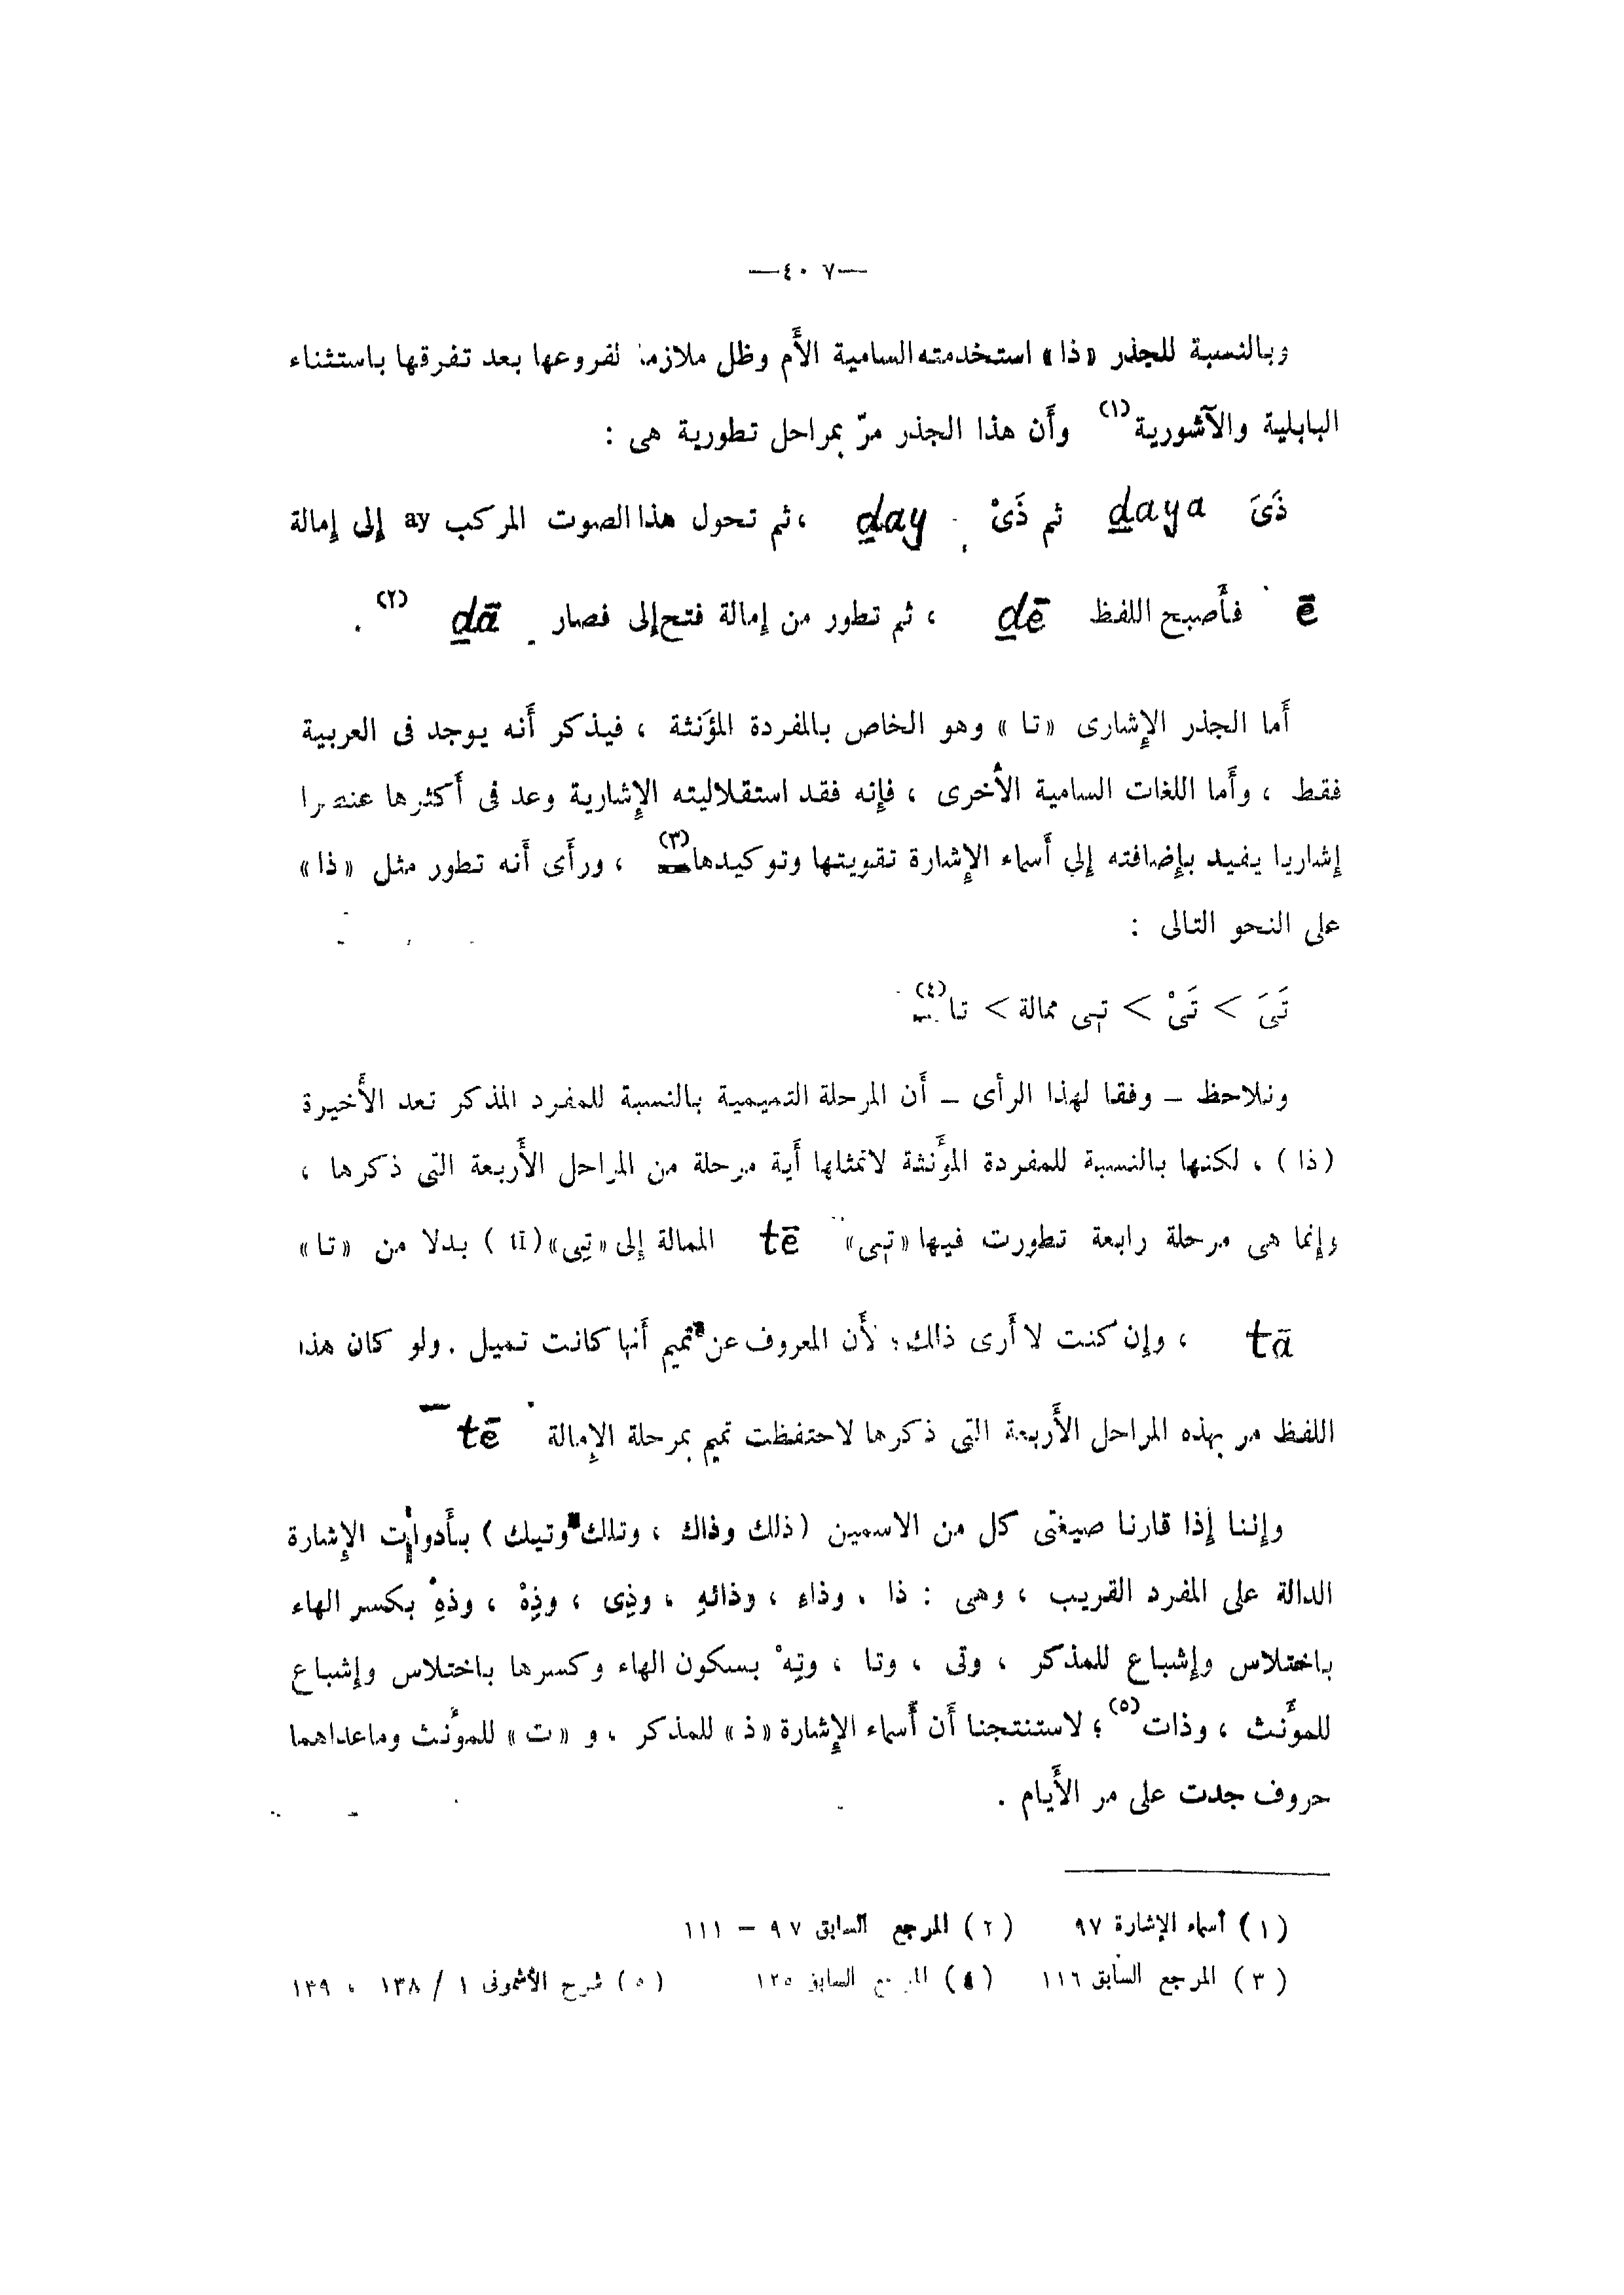 —٤٠٧—
وبالنسبة للجذر «ذا» استخدمته السامية الأَم وظل ملازما لفروعها بعد تفرقها باستثناء
البابلية والآشورية(١) وأَن هذا الجذر مرّ بمراحل تطورية هى :
ذَىَ ḏaya ثم ذَىْ ḏay ، ثم تحول هذا الصوت المركب ay إلى إمالة
ē فأَصبح اللفظ ḏē ، ثم تطور من إمالة فتح إلى فصار ḏā (٢) .
أَما الجذر الإِشارى «تا» وهو الخاص بالمفردة المؤَنثة ، فيذكر أَنه يوجد فى العربية
فقط ، وأَما اللغات السامية الأُخرى ، فإِنه فقد استقلاليته الإِشارية وعد فى أَكثرها عنصرا
إِشاريا يفيد بإِضافته إِلى أَسماء الإِشارة تقويتها وتوكيدها(٣) ، ورأَى أَنه تطور مثل «ذا»
على النحو التالى :
تَىَ > تَىْ > تِى ممالة > تا(٤)
ونلاحظ – وفقا لهذا الرأى – أَن المرحلة التميمية بالنسبة للمفرد المذكر تعد الأَخيرة
(ذا) ، لكنها بالنسبة للمفردة المؤَنثة لاتمثلها أَية مرحلة من المراحل الأَربعة التى ذكرها ،
وإنما هى مرحلة رابعة تطورت فيها «تِى» tē الممالة إِلى «تِى» (tī) بدلا من «تا»
tā ، وإِن كنت لا أَرى ذالك؛ لأَن المعروف عن تميم أَنها كانت تميل . ولو كان هذا
اللفظ مر بهذه المراحل الأَربعة التى ذكرها لاحتفظت تميم بمرحلة الإِمالة tē
وإِننا إِذا قارنا صيغتى كل من الاسمين (ذلك وذاك ، وتلك وتيك) بأَدوات الإِشارة
الدالة على المفرد القريب ، وهى : ذا ، وذاءِ ، وذائهِ ، وذِى ، وذِهْ ، وذهِ بكسر الهاء
باختلاس وإِشباع للمذكر ، وتى ، وتا ، وتِهْ بسكون الهاء وكسرها باختلاس وإِشباع
للمؤَنث ، وذات(٥) ؛ لاستنتجنا أَن أَسماء الإِشارة «ذ» للمذكر ، و «ت» للمؤنث وماعداهما
حروف جدت على مر الأَيام .
(١) أسماء الإشارة ٩٧ (٢) المرجع السابق ٩٧ – ١١١
(٣) المرجع السابق ١١٦ (٤) المرجع السابق ١٢٥ (٥) شرح الأشمونى ١ / ١٣٨ ، ١٣٩